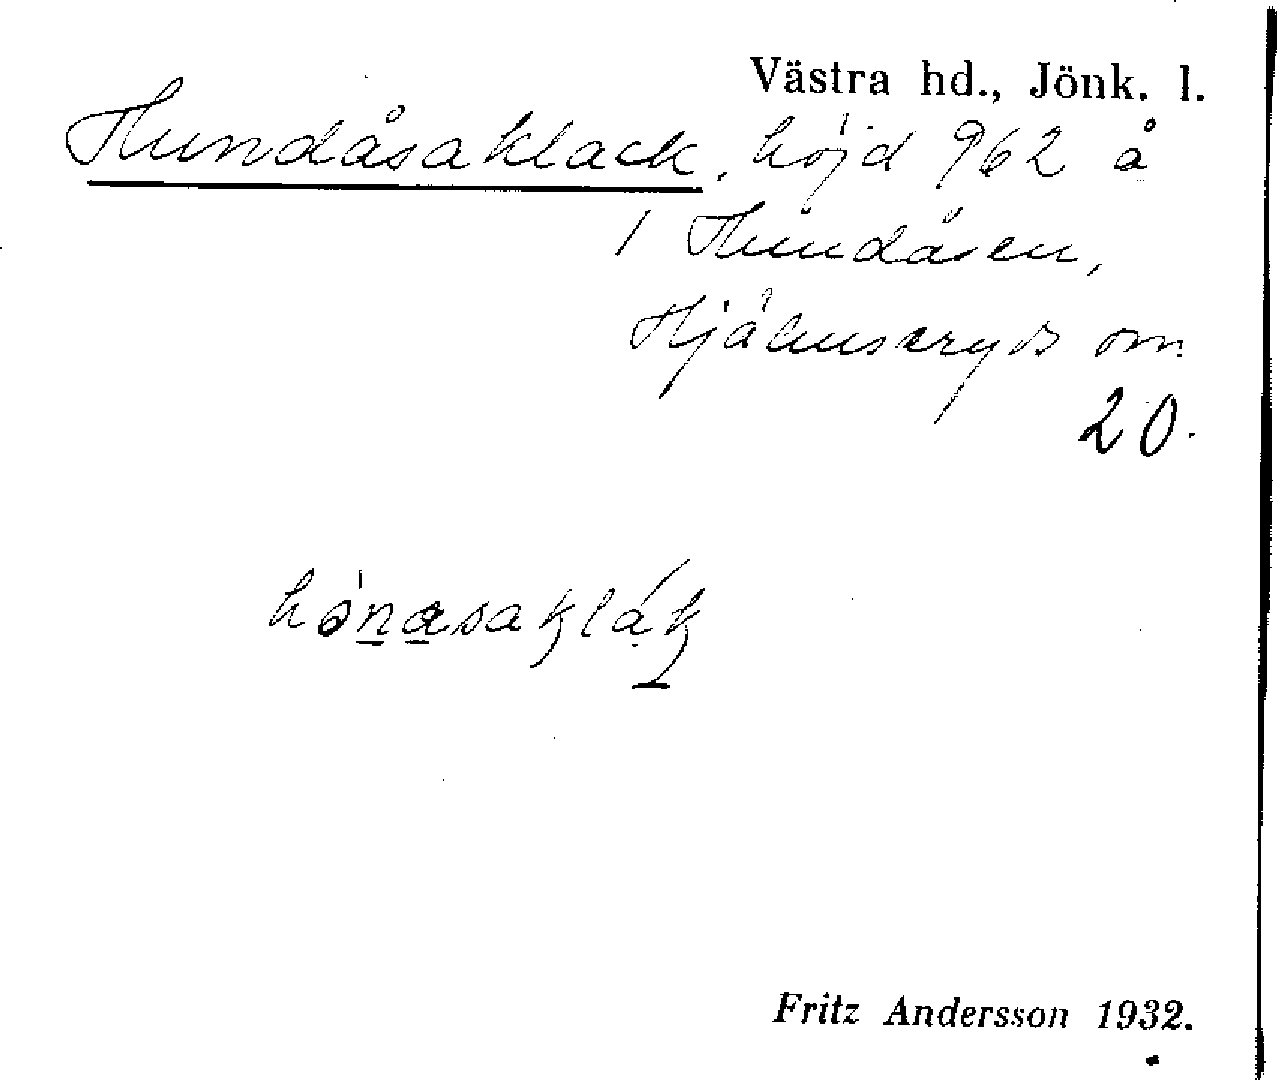 Västra hd., Jönk. l.
Hundåsaklack, höjd 962 å
1 Hundåsen,
Hjälmseryds sn
20.
Fritz Andersson 1932.